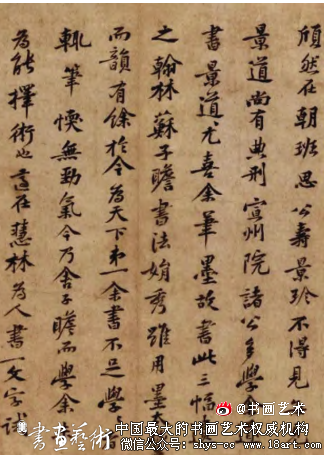 頎然在朝班思公壽景珍不得見
景道尚有典刑宣州院諸公多學
書景道尤喜余筆墨故書此三幅
之翰林蘇子瞻書法娟秀雖用墨太
而韻有餘於今為天下第一余書不足學
輒筆愞無勁氣今乃舍子瞻而學余
為能擇術也適在慧林為人書一文字試
@书画艺术
書畫藝術
中国最大的书画艺术权威机构
微信公众号:shys-cc www.18art.com